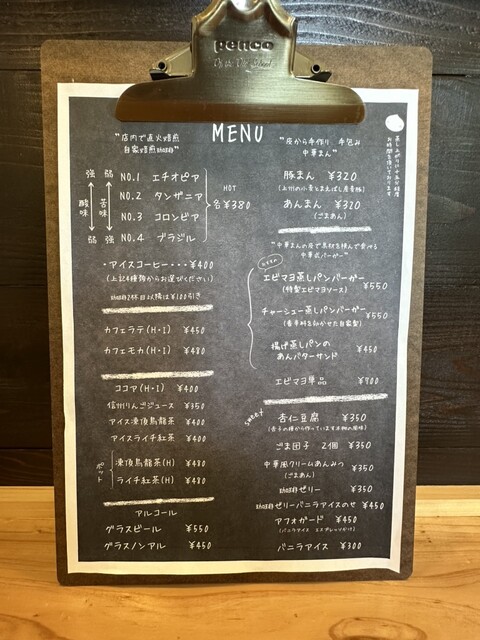 penco
MENU
"店内で直火焙煎
自家焙煎珈琲"
強 弱
酸味 苦味
弱 強
NO.1 エチオピア
NO.2 タンザニア
NO.3 コロンビア
NO.4 ブラジル
HOT
各¥380
・アイスコーヒー・・・¥400
(上記4種類からお選びください)
珈琲2杯目以降は¥100引き
カフェラテ(H・I) ¥450
カフェモカ(H・I) ¥480
ココア(H・I) ¥400
信州りんごジュース ¥350
アイス凍頂烏龍茶 ¥400
アイスライチ紅茶 ¥400
ポット
凍頂烏龍茶(H) ¥480
ライチ紅茶(H) ¥480
アルコール
グラスビール ¥550
グラスノンアル ¥450
"皮から手作り 手包み
中華まん"
豚まん ¥320
あんまん ¥320
(ごまあん)
"中華まんの皮で具材を挟んで食べる
中華式バーガー"
おすすめ
エビマヨ蒸しパンバーガー ¥550
(特製エビマヨソース)
チャーシュー蒸しパンバーガー ¥550
揚げ蒸しパンの
あんバターサンド ¥450
エビマヨ単品 ¥700
sweet
杏仁豆腐 ¥350
ごま団子 2個 ¥350
中華風クリームあんみつ ¥350
(ごまあん)
珈琲ゼリー ¥350
珈琲ゼリーバニラアイスのせ ¥450
アフォガード ¥450
(バニラアイス エスプレッソがけ)
バニラアイス ¥300